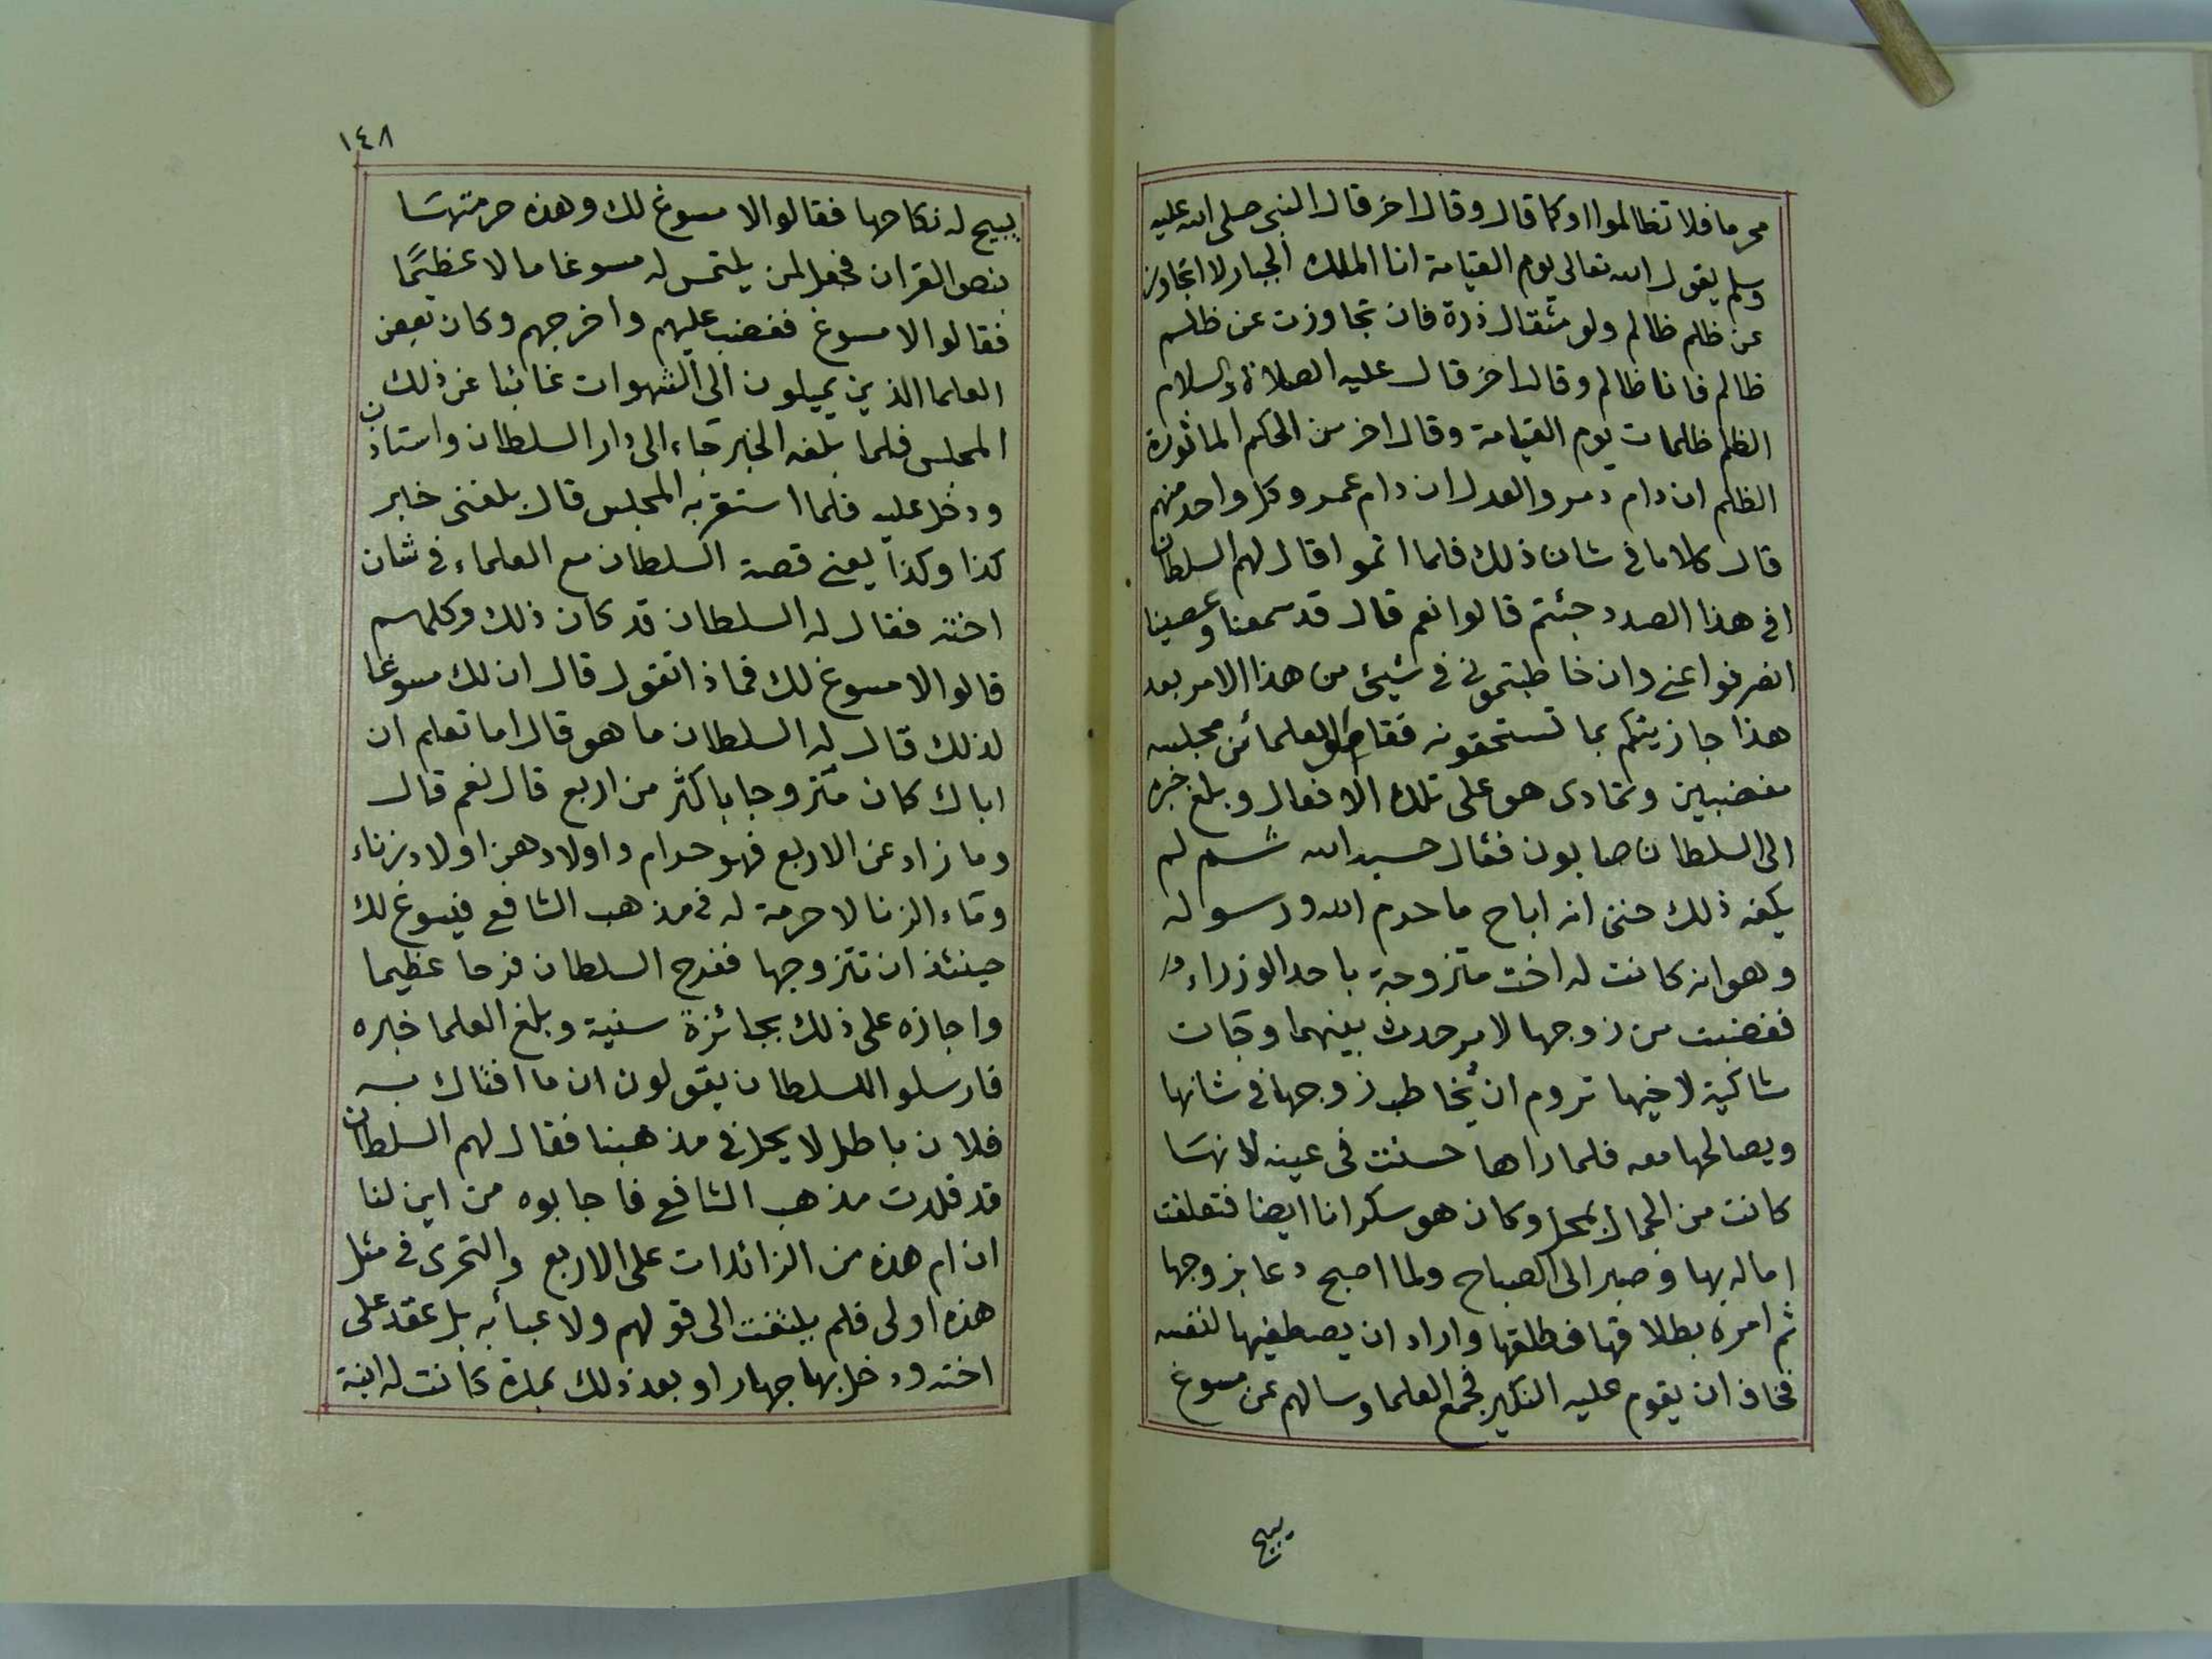 محرما فلا تظالموا اوكما قال وقال اخر قال النبى صلى الله عليه
وسلم يقول الله تعالى يوم القيامة انا الملك الجبار لا اتجاوز
عن ظلم ظالم ولو مثقال ذرة فان تجاوزت عن ظلم
ظالم فانا ظالم وقال اخر قال عليه الصلاة والسلام
الظلم ظلمات يوم القيامة وقال اخر من الحكم الماثورة
الظلم ان دام دمر والعدل ان دام عمر وكل واحد منهم
قال كلاما فى شان ذلك فلما اتموا قال لهم السلطان
افى هذا الصدد جئتم قالوا نعم قال قد سمعنا وعصينا
انصرفوا عنى وان خاطبتمونى فى شيئ من هذا الامر بعد
هذا جازيتكم بما تستحقونه فقام العلما من مجلسه
مغضبين وتمادى هو على تلك الافعال وبلغ خبره
الى السلطان صابون فقال حسبه الله ثم لم
يكفه ذلك حتى انه اباح ما حرم الله ورسوله
وهو انه كانت له اخت متزوجة باحد الوزراء
فغضبت من زوجها لامر حدث بينهما وجات
شاكية لاخيها تروم ان يخاطب زوجها فى شانها
ويصالحها معه فلما راها حسنت فى عينه لانها
كانت من الجمال بمحل وكان هو سكرانا ايضا فتعلقت
اماله بها وصبر الى الصباح ولما اصبح دعا بزوجها
ثم امره بطلاقها فطلقها واراد ان يصطفيها لنفسه
فخاف ان يقوم عليه النكير فجمع العلما وسالهم عن مسوغ
يبيح
١٤٨
يبيح له نكاحها فقالوا لا مسوغ لك وهذه حرمتها
بنص القران فجعل لمن يلتمس له مسوغا مالا عظيمًا
فقالوا لا مسوغ فغضب عليهم واخرجهم وكان بعض
العلما الذين يميلون الى الشهوات غائبا عن ذلك
المجلس فلما بلغه الخبر جاء الى دار السلطان واستاذن
ودخل عليه فلما استقر به المجلس قال بلغنى خبر
كذا وكذا يعنى قصة السلطان مع العلماء فى شان
اخته فقال له السلطان قد كان ذلك وكلهم
قالوا لا مسوغ لك فماذا تقول قال ان لك مسوغا
لذلك قال له السلطان ما هو قال اما تعلم ان
اباك كان متزوجا باكثر من اربع قال نعم قال
وما زاد عن الاربع فهو حرام واولادهن اولاد زناء
وماء الزنا لا حرمة له فى مذهب الشافع فيسوغ لك
حينئذ ان تتزوجها ففرح السلطان فرحا عظيما
واجازه على ذلك بجائزة سنية وبلغ العلما خبره
فارسلوا للسلطان يقولون ان ما افتاك به
فلان باطل لا يحل فى مذهبنا فقال لهم السلطان
قد قلدت مذهب الشافع فاجابوه من اين لنا
ان ام هذه من الزائدات على الاربع والتحرى فى مثل
هذه اولى فلم يلتفت الى قولهم ولا عبأ به بل عقد على
اخته ودخل بها جهارا وبعد ذلك بمدة كانت له ابنة